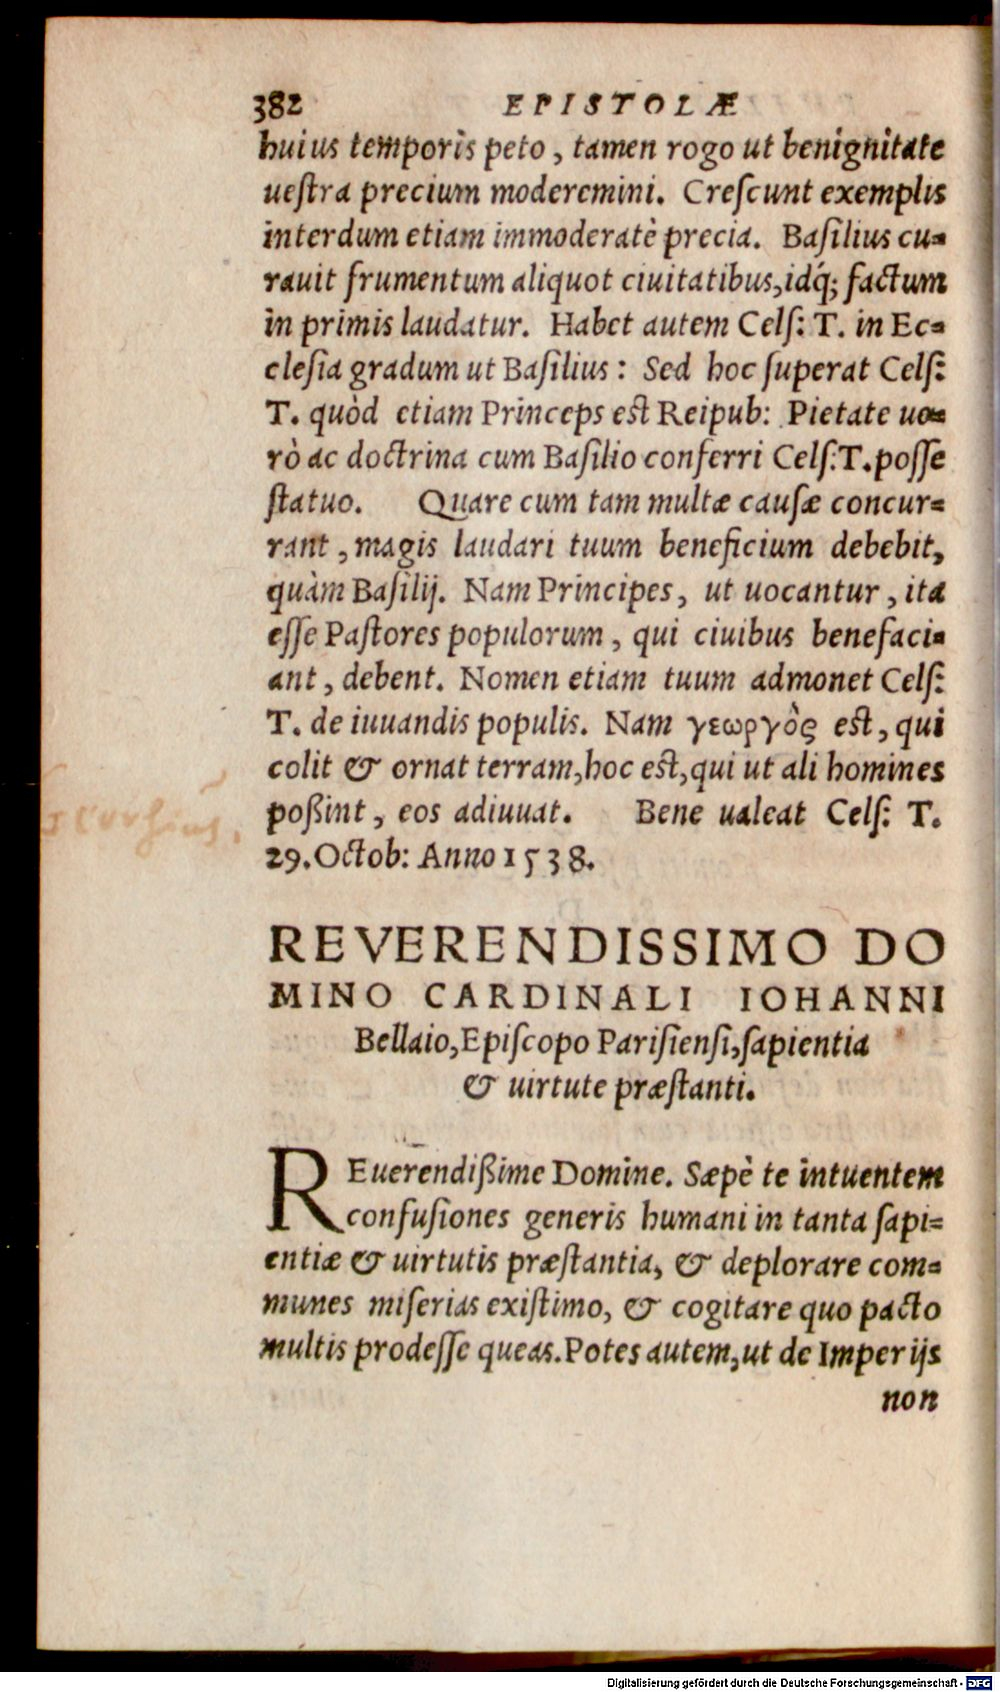 382 EPISTOLÆ
huius temporis peto, tamen rogo ut benignitate
ueſtra precium moderemini. Creſcunt exemplis
interdum etiam immoderatè precia. Baſilius cu-
rauit frumentum aliquot ciuitatibus, idq́; factum
in primis laudatur. Habet autem Celſ: T. in Ec-
cleſia gradum ut Baſilius: Sed hoc ſuperat Celſ:
T. quòd etiam Princeps est Reipub: Pietate ue-
rò ac doctrina cum Baſilio conferri Celſ: T. poſſe
ſtatuo. Quare cum tam multæ cauſæ concur-
rant, magis laudari tuum beneficium debebit,
quàm Baſilij. Nam Principes, ut uocantur, ita
eſſe Paſtores populorum, qui ciuibus benefaci-
ant, debent. Nomen etiam tuum admonet Celſ:
T. de iuuandis populis. Nam γεωργὸς est, qui
colit & ornat terram, hoc est, qui ut ali homines
poßint, eos adiuuat. Bene ualeat Celſ: T.
29. Octob: Anno 1538.
REVERENDISSIMO DO
MINO CARDINALI IOHANNI
Bellaio, Epiſcopo Pariſienſi, ſapientia
& uirtute præſtanti.
REuerendißime Domine. Sæpè te intuentem
confuſiones generis humani in tanta ſapi-
entiæ & uirtutis præſtantia, & deplorare com-
munes miſerias exiſtimo, & cogitare quo pacto
multis prodeſſe queas. Potes autem, ut de Imperijs
non
Digitalisierung gefördert durch die Deutsche Forschungsgemeinschaft - DFG